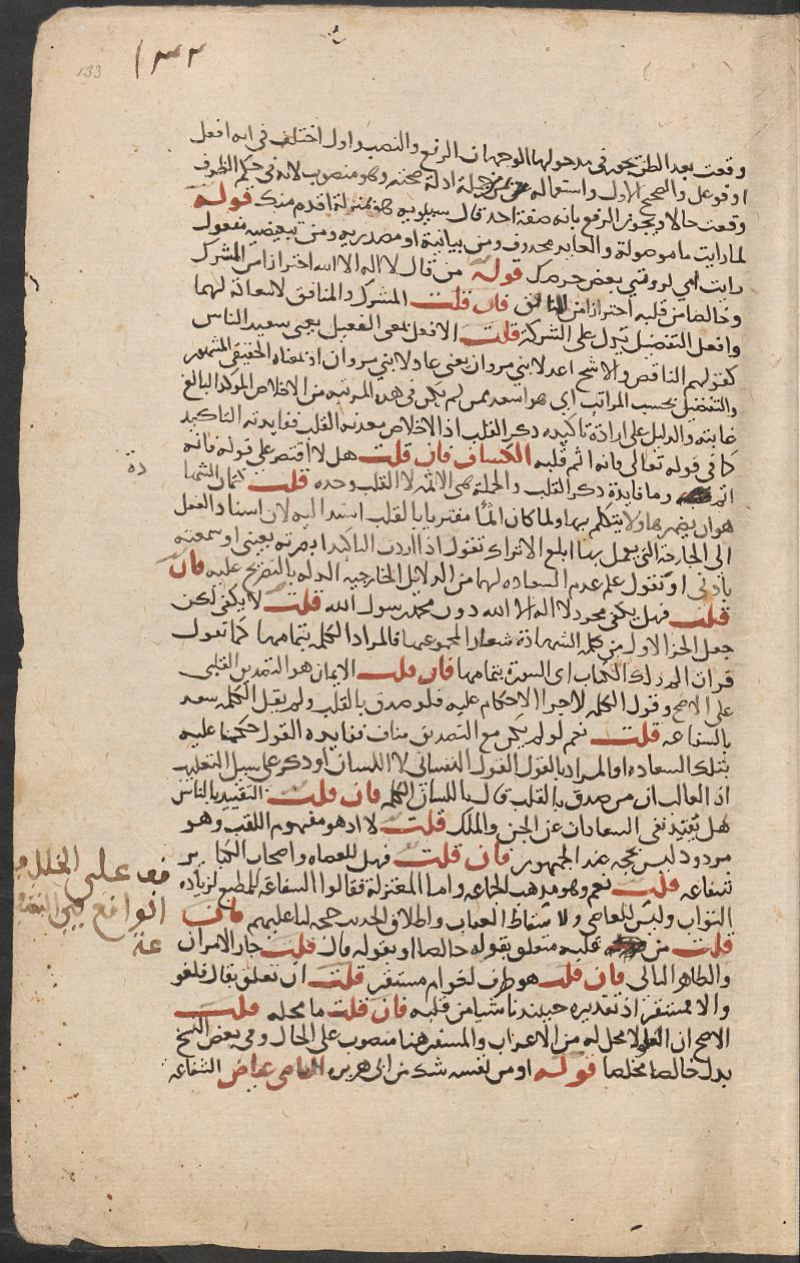 133
١٣٣
وقعت بعد الظن يجوز في مدخولها الوجهان الرفع والنصب واول اختلف في انه افعل
او فوعل والصحيح الاول واستعماله بمن من جملة ادلة صحته وهو منصوب لانه في حكم الظروف
وقعت حالا ويجوز الرفع بانه صفة احد قال سيبويه هو بمنزلة اقدم منك قوله
لما رايت ما موصولة والعايد محذوف ومن بيانية او مصدرية ومن تبعيضية مفعول
رايت اي لرويتي بعض حرصك قوله من قال لا اله الا الله احتراز من المشرك
وخالصا من قلبه احتراز من المنافق فان قلت المشرك والمنافق لا سعادة لهما
وافعل التفضيل يدل على الشركة قلت الافعل بمعنى الفعيل يعني سعيد الناس
كقولهم الناقص والاشج اعدلا بني مروان يعني عادلا بني مروان او بمعناه الحقيقي المشهور
والتفضيل بحسب المراتب اي هو اسعد ممن لم يكن في هذه المرتبة من الاخلاص الموكد البالغ
غايته والدليل على ارادة تاكيده ذكر القلب اذ الاخلاص معدنه القلب ففايدته التاكيد
كما في قوله تعالى فانه اثم قلبه الكشاف فان قلت هلا اقتصر على قوله فانه
اثم وما فايدة ذكر القلب والجملة هي الاثمة لا القلب وحده قلت كتمان الشهادة
هو ان يضمرها ولا يتكلم بها ولما كان اثما مقترنا بالقلب اسند اليه لان اسناد الفعل
الى الجارحة التي يعمل بها ابلغ الا تراك تقول اذا اردت التاكيد ابصرته بعيني او سمعته
باذني او تقول علم عدم السعادة لهما من الدلايل الخارجية الدالة بالتصريح عليه فان
قلت فهل يكفي مجرد لا اله الا الله دون محمد رسول الله قلت لا يكفي لكن
جعل الجزء الاول من كلمة الشهادة شعارا لمجموعها فالمراد الكلمة بتمامها كما تقول
قرات الم ذلك الكتاب اي السورة بتمامها فان قلت الايمان هو التصديق القلبي
على الاصح وقول الكلمة لاجراء الاحكام عليه فلو صدق بالقلب ولم يقل الكلمة سعد
بالشفاعة قلت نعم لو لم يكن مع التصديق مناف ففايدة القول حكمنا عليه
بتلك السعادة او المراد بالقول القول النفساني لا اللسان او ذكر على سبيل التغليب
اذ الغالب ان من صدق بالقلب قال باللسان الكلمة فان قلت التقييد بالناس
هل يفيد نفي السعادات عن الجن والملك قلت لا اذ هو مفهوم اللقب وهو
مردود ليس بحجة عند الجمهور فان قلت فهل للعصاة واصحاب الكباير
شفاعة قلت نعم وهو مذهب الجماعة واما المعتزلة فقالوا الشفاعة للمطيع لزيادة
الثواب وليس للعاصي ولاسقاط العقاب واطلاق الحديث حجة لنا عليهم فان
قلت من قلبه متعلق بقوله خالصا او بقوله قال قلت جاز الامران
والظاهر الثاني فان قلت هو ظرف لغو ام مستقر قلت ان تعلق بقال فلغو
والا فمستقر اذ تقديره حينئذ ناشيا من قلبه فان قلت ما محله قلت
الاصح ان اللغو لا محل له من الاعراب والمستقر هنا منصوب على الحال وفي بعض النسخ
بدل خالصا مخلصا قوله او من نفسه شك من ابي هريرة القاضي عياض الشفاعة
دة
قف على الخلل
الواقع